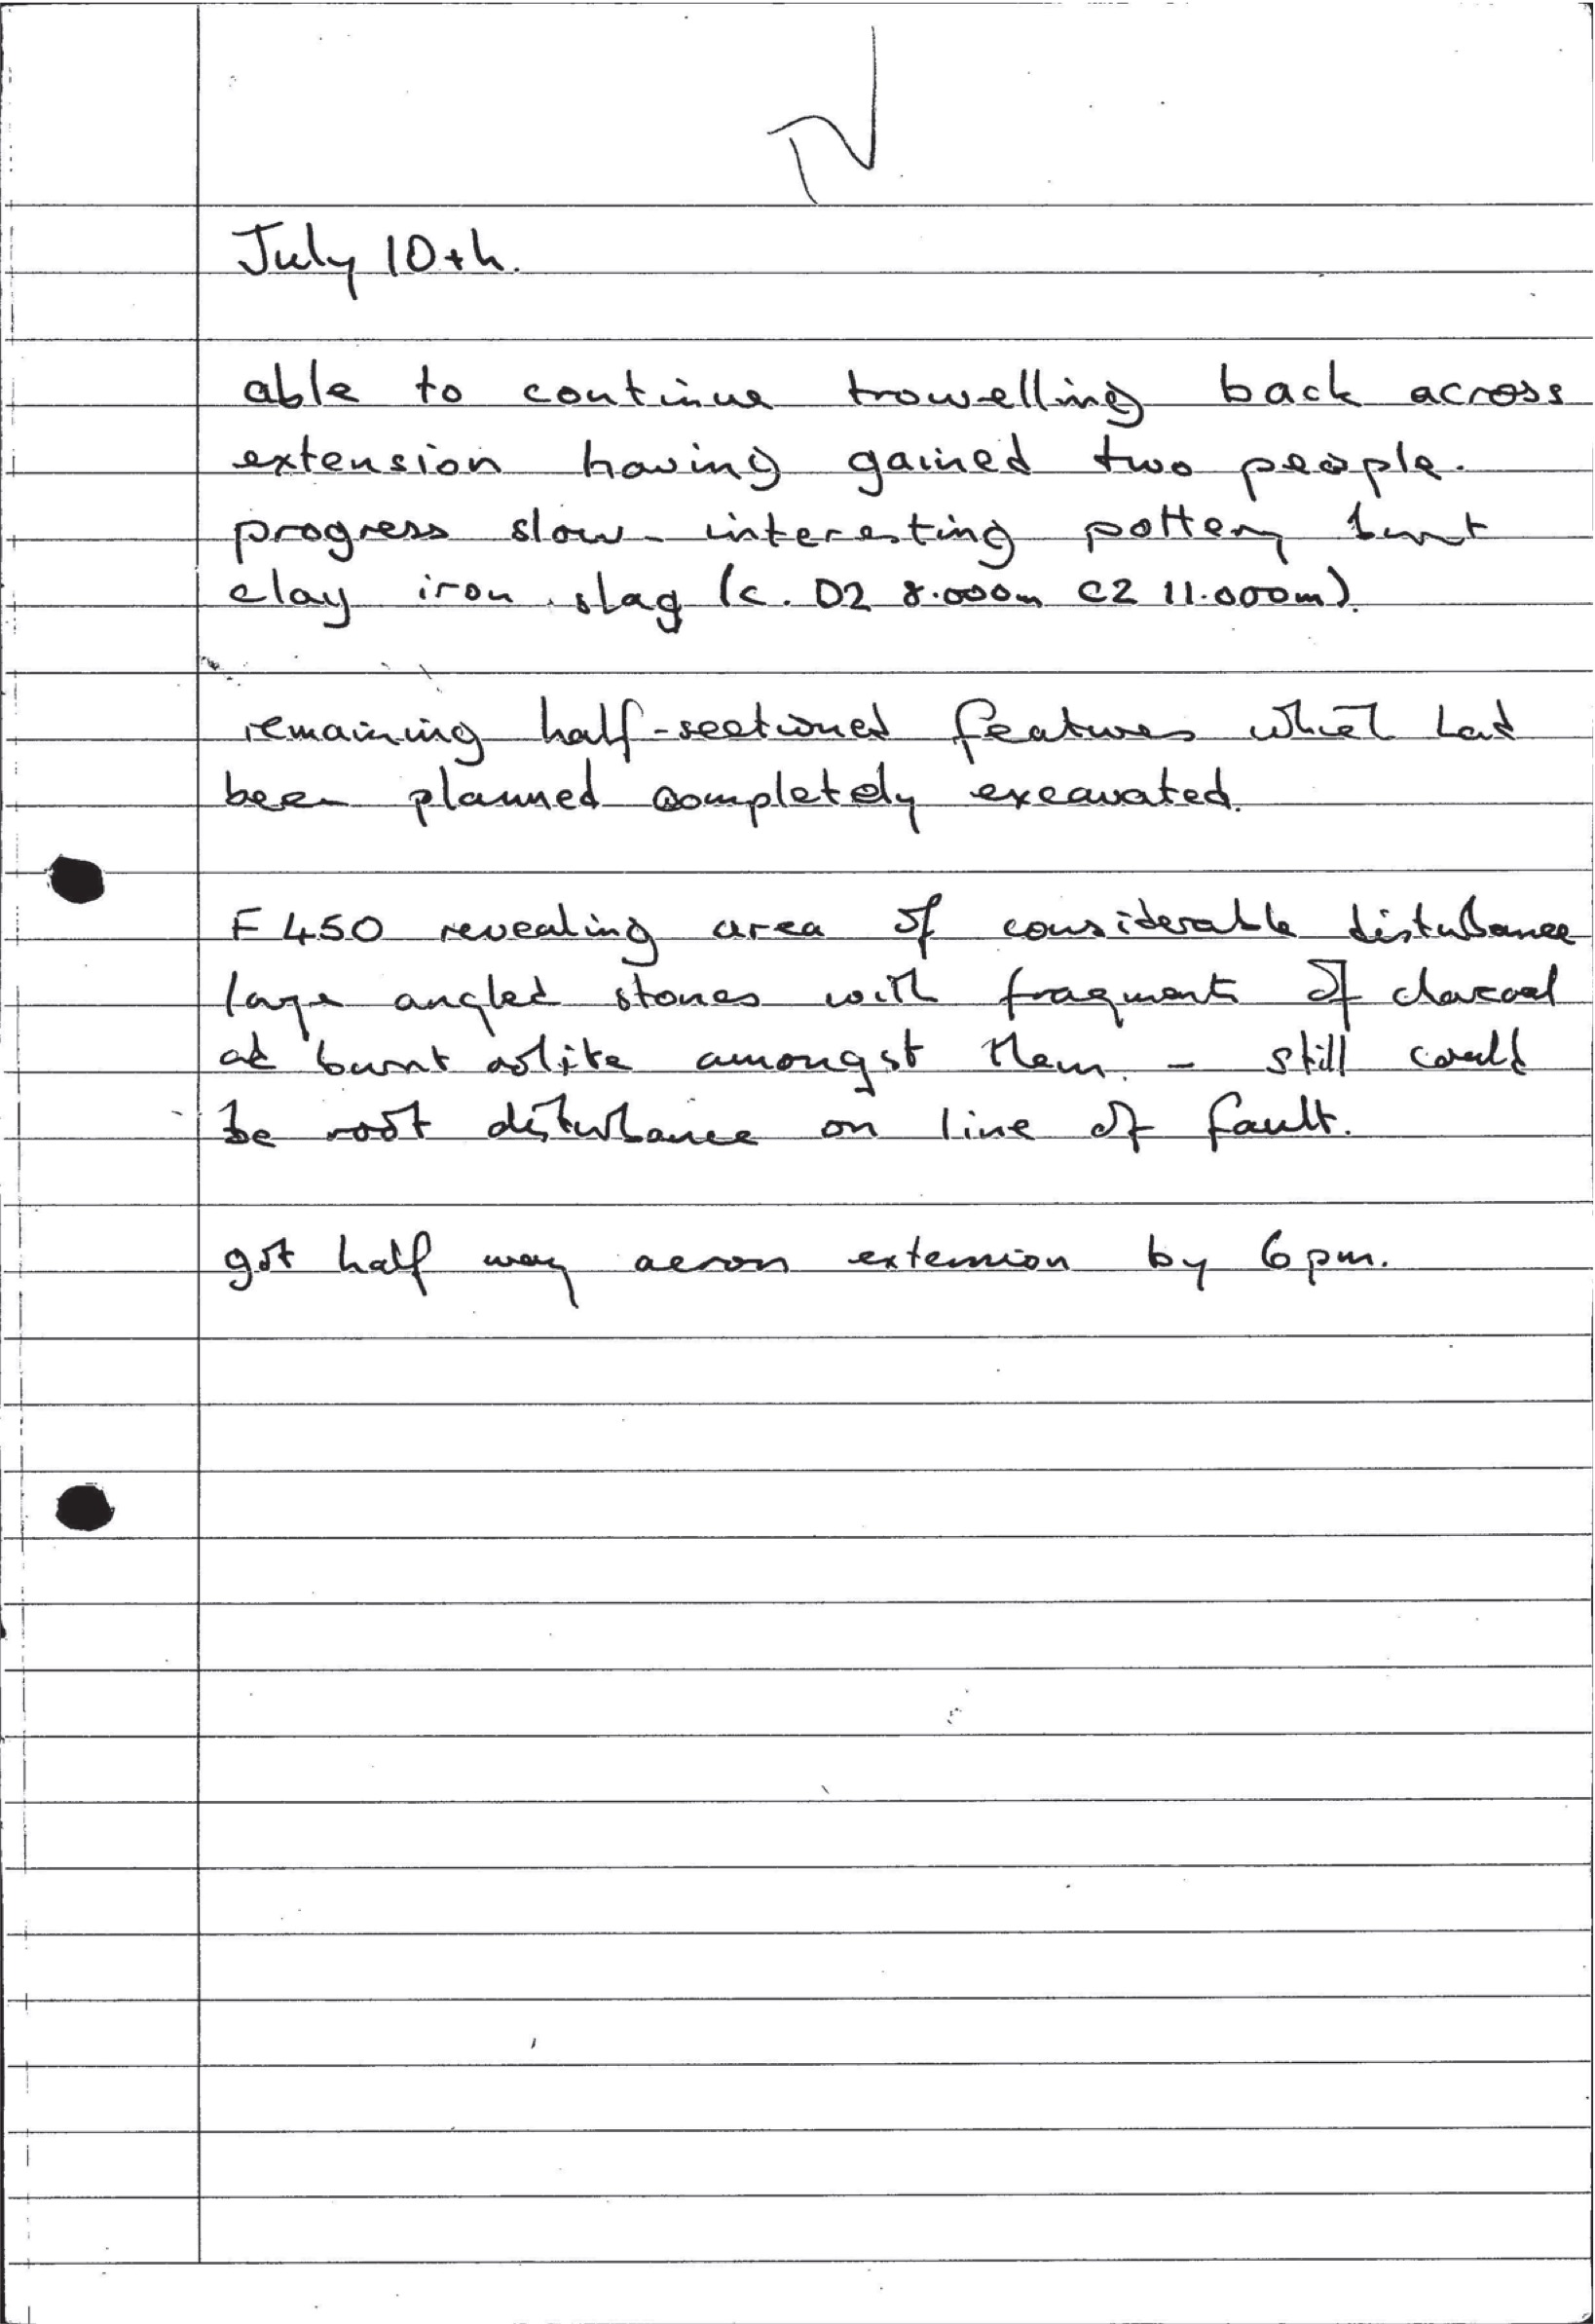 July 10th.
able to continue trowelling back across
extension having gained two people.
progress slow - interesting pottery burnt
clay iron slag (c. D2 8.000m C2 11.000m).
remaining half-sectioned features which had
been planned completely excavated.
F450 revealing area of considerable disturbance
large angled stones with fragments of charcoal
and burnt oolite amongst them. - still could
be root disturbance on line of fault.
got half way across extension by 6pm.